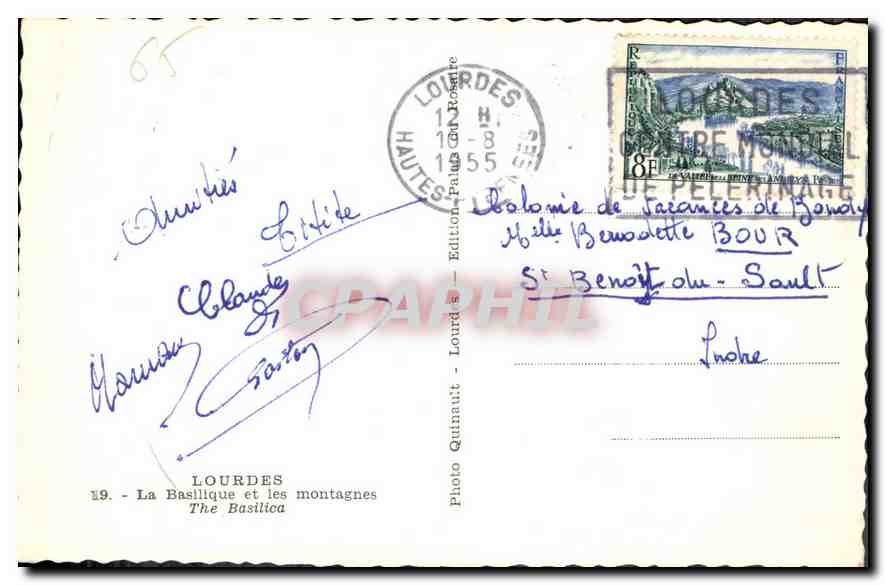 65
LOURDES
12 H.
16-8
1955
HAUTES-PYRENEES
REPUBLIQUE FRANÇAISE
8F
LA VALLEE DE LA SEINE AUX ANDELYS
LOURDES
CENTRE MONDIAL
DE PELERINAGE
Amitiés
Titite
Claude
Maman
Gaston
Colonie de Vacances de Bondy
Melle Bernadette BOUR
St Benoît du-Sault
Indre
CPAPHIL
Photo Quinault - Lourdes — Edition Palais du Rosaire
LOURDES
19. - La Basilique et les montagnes
The Basilica